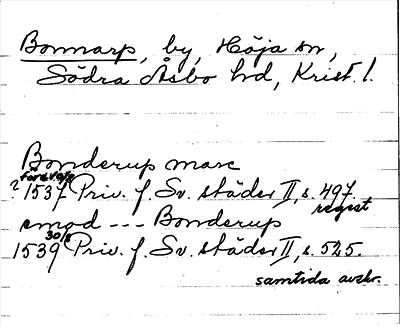 Bonnarp, by, Höja sn,
Södra Åsbo hd, Krist. l.
Bonderup marc
före
? 1537 Priv. f. Sv. städer II, s. 497.
regist
emod --- Bonderup
30/8
1539 Priv. f. Sv. städer II, s. 525.
samtida avskr.